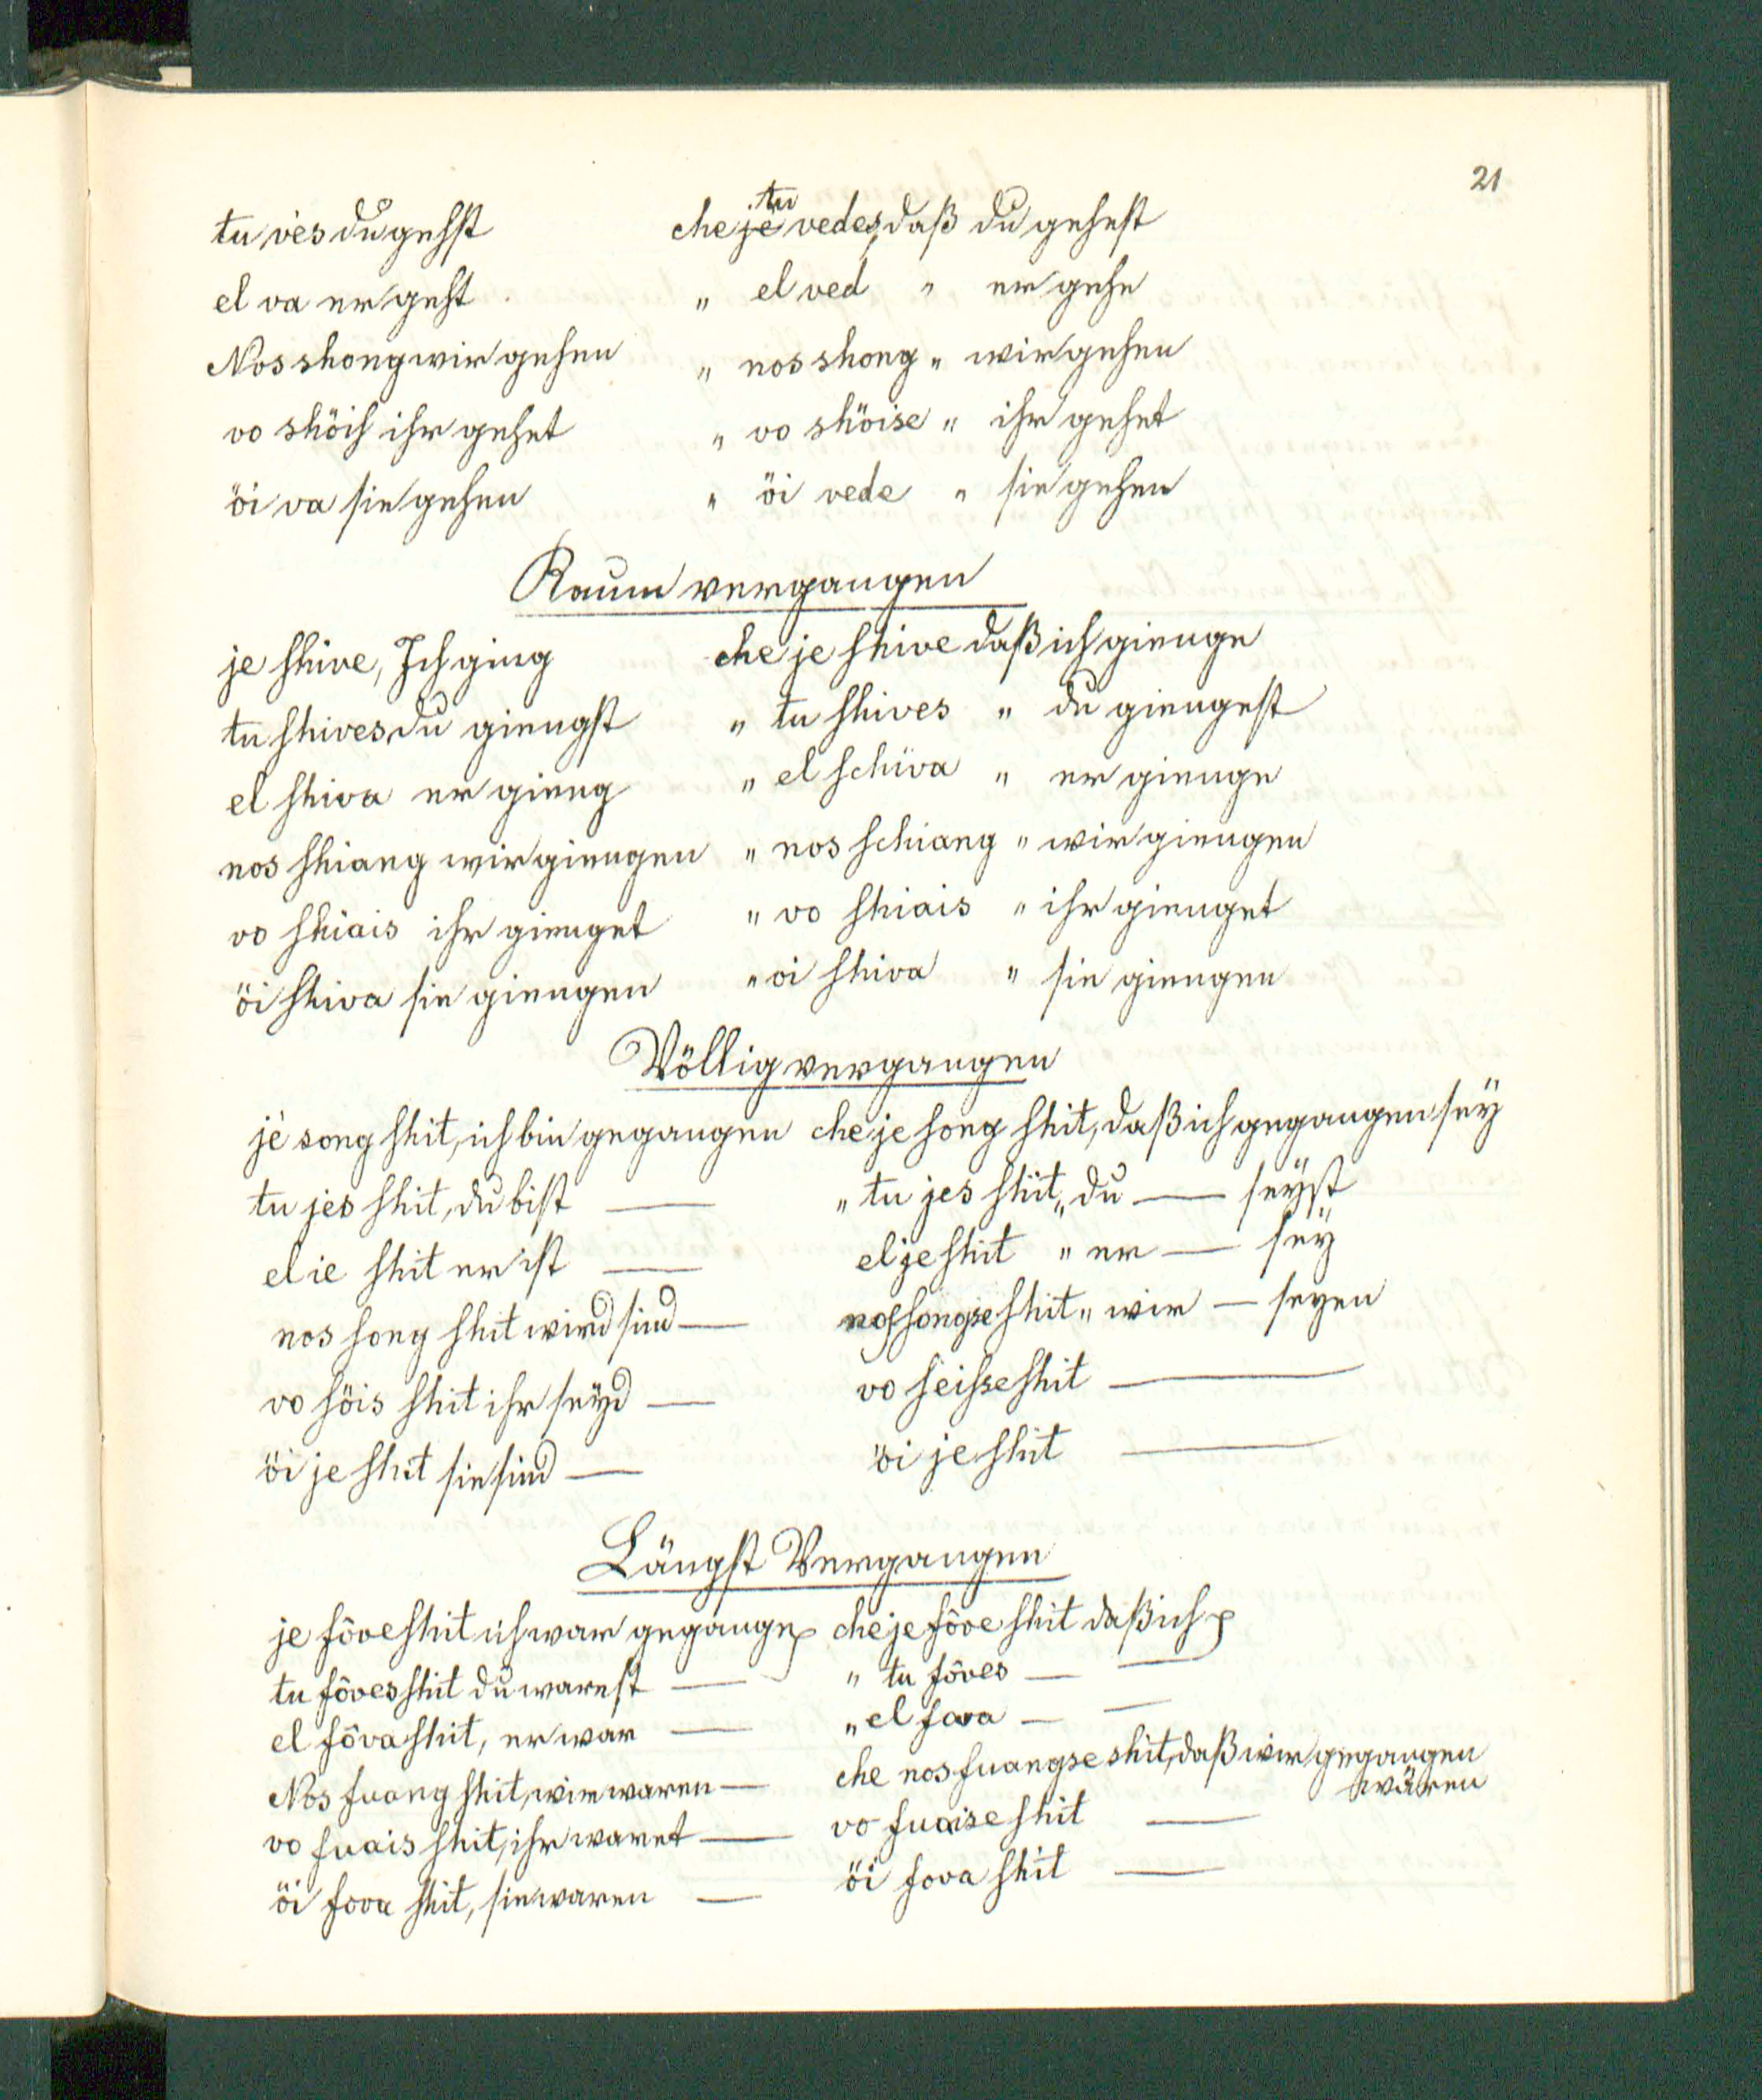 21
tu vès du gehst che je tu vedes, daß du gehest
el va er geht „ el ved „ er gehe
Nos shong wir gehen „ nos shong „ wir gehen
vo shöih ihr gehet „ vo shöise „ ihr gehet
öi va sie gehen „ öi vede „ sie gehen
Kaum vergangen
je shive, Ich ging che je shive daß ich gienge
tu shives du giengst „ tu shives „ du giengest
el shiva er gieng „ el schiva „ er gienge
nos shiang wir giengen „ nos schiang „ wir giengen
vo shiais ihr gienget „ vo shiais „ ihr gienget
öi shiva sie giengen „ oi shiva „ sie giengen
Völlig vergangen
jè song shit, ich bin gegangen che je song shit, daß ich gegangen seÿ
tu jes shit, du bist — „ tu jes shit „ du — seÿst
el ie shit er ist — el je shit „ er — seÿ
nos song shit wird sind — nos songse shit „ wir — seyen
vo söis shit ihr seÿd — vo seisse shit —
öi je shit sie sind — öi je shit —
Längst Vergangen
je fôve shit ich war gegangen che je fôve shit daß ich
tu fôves shit du warest — „ tu fôves — —
el fôva shit, er war — „ el fova — —
Nos fuang shit, wir waren — che nos fuangse shit, daß wir gegangen
wären
vo fuais shit, ihr waret — vo fuaise shit —
öi fova shit, sie waren — öi fova shit —